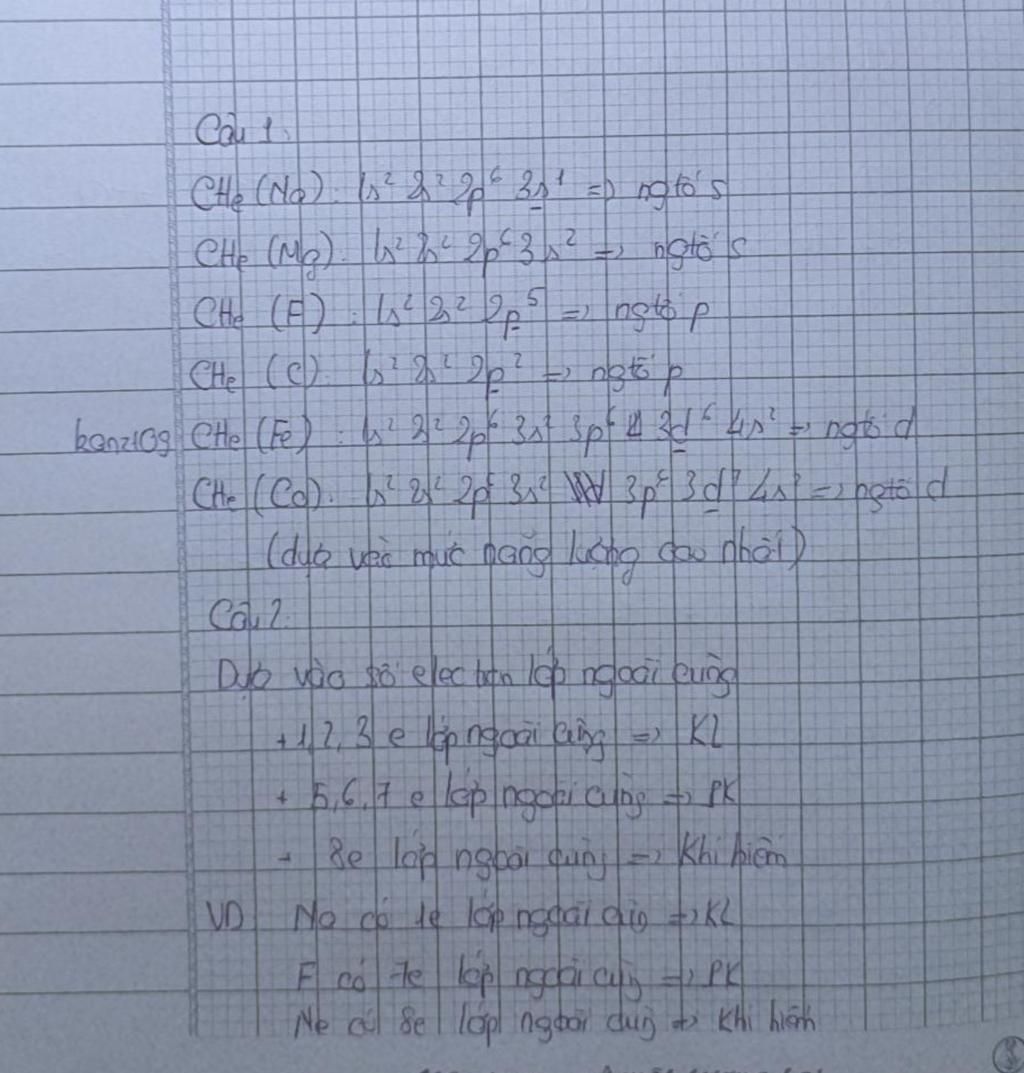 Câu 1.
CHe (Na): 1s² 2s² 2p⁶ 3s¹ => ngtố s
CHe (Mg): 1s² 2s² 2p⁶ 3s² => ngtố s
CHe (F): 1s² 2s² 2p⁵ => ngtố p
CHe (C): 1s² 2s² 2p² => ngtố p
CHe (Fe): 1s² 2s² 2p⁶ 3s² 3p⁶ 3d⁶ 4s² => ngtố d
CHe (Co): 1s² 2s² 2p⁶ 3s² 3p⁶ 3d⁷ 4s² => ngtố d
(dựa vào mức năng lượng cao nhất)
Câu 2.
Dựa vào số electron lớp ngoài cùng
+ 1, 2, 3 e lớp ngoài cùng => KL
+ 5, 6, 7 e lớp ngoài cùng => PK
- 8e lớp ngoài cùng => Khí hiếm
VD Na có 1e lớp ngoài cùng => KL
F có 7e lớp ngoài cùng => PK
Ne có 8e lớp ngoài cùng => Khí hiếm